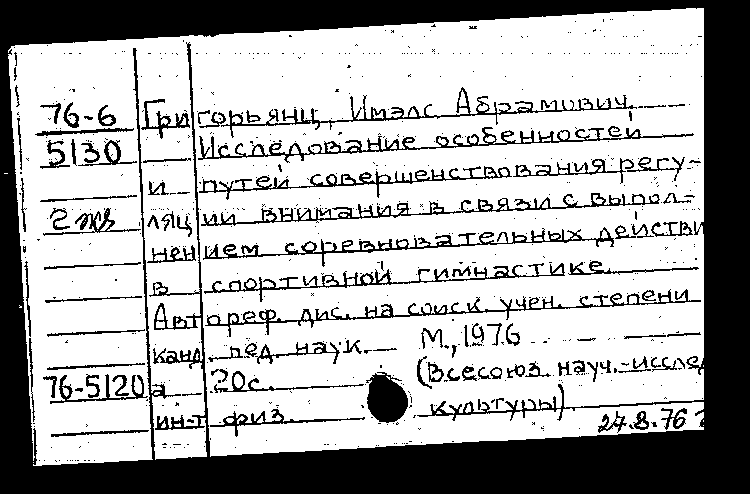 76-6 Григорьянц, Имэлс Абрамович.
5130 Исследование особенностей
и путей совершенствования регу-
2 экз ляции внимания в связи с выпол-
нением соревновательных действи
в спортивной гимнастике.
Автореф. дис. на соиск. учен. степени
канд. пед. наук. М., 1976
76-5120а 20с. (Всесоюз. науч.-исслед
ин-т физ. культуры).
27.8.76